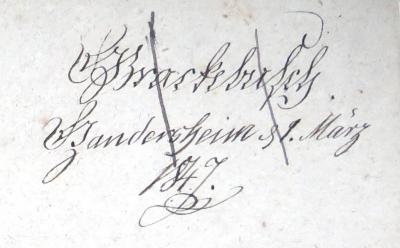 Brackebusch.
Gandersheim d. 1. März
1847.